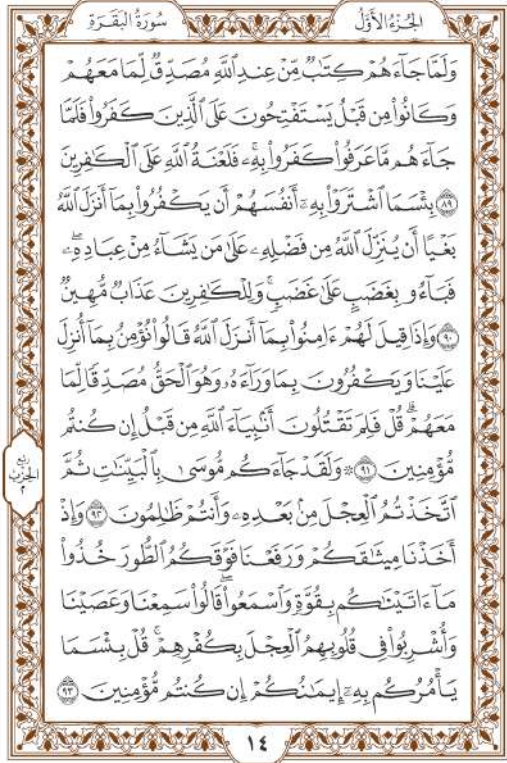 سُورَةُ الْبَقَرَةِ
الجُزْءُ الأَوَّلُ
وَلَمَّا جَآءَهُمْ كِتَٰبٌ مِّنْ عِندِ ٱللَّهِ مُصَدِّقٌ لِّمَا مَعَهُمْ
وَكَانُوا۟ مِن قَبْلُ يَسْتَفْتِحُونَ عَلَى ٱلَّذِينَ كَفَرُوا۟ فَلَمَّا
جَآءَهُم مَّا عَرَفُوا۟ كَفَرُوا۟ بِهِۦ ۚ فَلَعْنَةُ ٱللَّهِ عَلَى ٱلْكَٰفِرِينَ
٨٩ بِئْسَمَا ٱشْتَرَوْا۟ بِهِۦٓ أَنفُسَهُمْ أَن يَكْفُرُوا۟ بِمَآ أَنزَلَ ٱللَّهُ
بَغْيًا أَن يُنَزِّلَ ٱللَّهُ مِن فَضْلِهِۦ عَلَىٰ مَن يَشَآءُ مِنْ عِبَادِهِۦ ۖ
فَبَآءُو بِغَضَبٍ عَلَىٰ غَضَبٍ ۚ وَلِلْكَٰفِرِينَ عَذَابٌ مُّهِينٌ
٩٠ وَإِذَا قِيلَ لَهُمْ ءَامِنُوا۟ بِمَآ أَنزَلَ ٱللَّهُ قَالُوا۟ نُؤْمِنُ بِمَآ أُنزِلَ
عَلَيْنَا وَيَكْفُرُونَ بِمَا وَرَآءَهُۥ وَهُوَ ٱلْحَقُّ مُصَدِّقًا لِّمَا
مَعَهُمْ ۗ قُلْ فَلِمَ تَقْتُلُونَ أَنۢبِيَآءَ ٱللَّهِ مِن قَبْلُ إِن كُنتُم
مُّؤْمِنِينَ ٩١ ۞ وَلَقَدْ جَآءَكُم مُّوسَىٰ بِٱلْبَيِّنَٰتِ ثُمَّ
ٱتَّخَذْتُمُ ٱلْعِجْلَ مِنۢ بَعْدِهِۦ وَأَنتُمْ ظَٰلِمُونَ ٩٢ وَإِذْ
أَخَذْنَا مِيثَٰقَكُمْ وَرَفَعْنَا فَوْقَكُمُ ٱلطُّورَ خُذُوا۟
مَآ ءَاتَيْنَٰكُم بِقُوَّةٍ وَٱسْمَعُوا۟ ۖ قَالُوا۟ سَمِعْنَا وَعَصَيْنَا
وَأُشْرِبُوا۟ فِى قُلُوبِهِمُ ٱلْعِجْلَ بِكُفْرِهِمْ ۚ قُلْ بِئْسَمَا
يَأْمُرُكُم بِهِۦٓ إِيمَٰنُكُمْ إِن كُنتُم مُّؤْمِنِينَ ٩٣
ربع
الحزب
٢
١٤